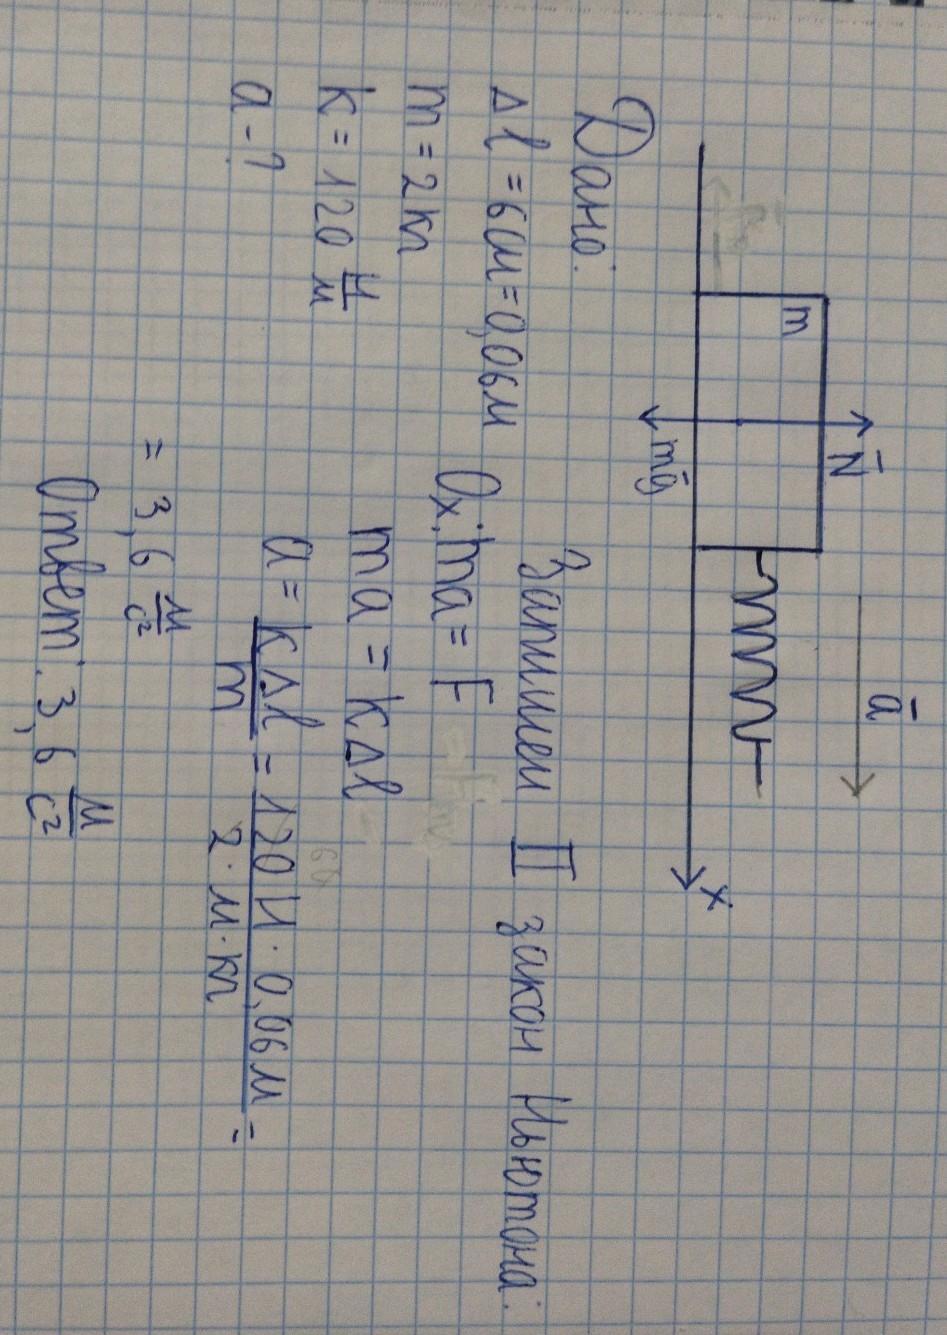 m
N̄
ā
mḡ
x
Дано:
Δl = 6см = 0,06м
m = 2кг
k = 120 Н/м
a - ?
Запишем II закон Ньютона:
Ox: ma = F
ma = kΔl
a = kΔl/m = 120 Н · 0,06м / 2 · м · кг =
= 3,6 м/с²
Ответ: 3,6 м/с²